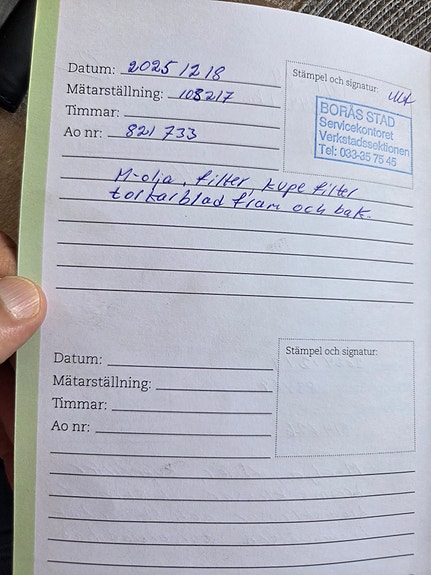 Datum: 2025 12 18
Mätarställning: 108217
Timmar:
Ao nr: 821 733
Stämpel och signatur:
BORÅS STAD
Servicekontoret
Verkstadssektionen
Tel: 033-35 75 45
M-olja, filter, kupe filter
torkarblad fram och bak.
Datum:
Mätarställning:
Timmar:
Ao nr:
Stämpel och signatur: